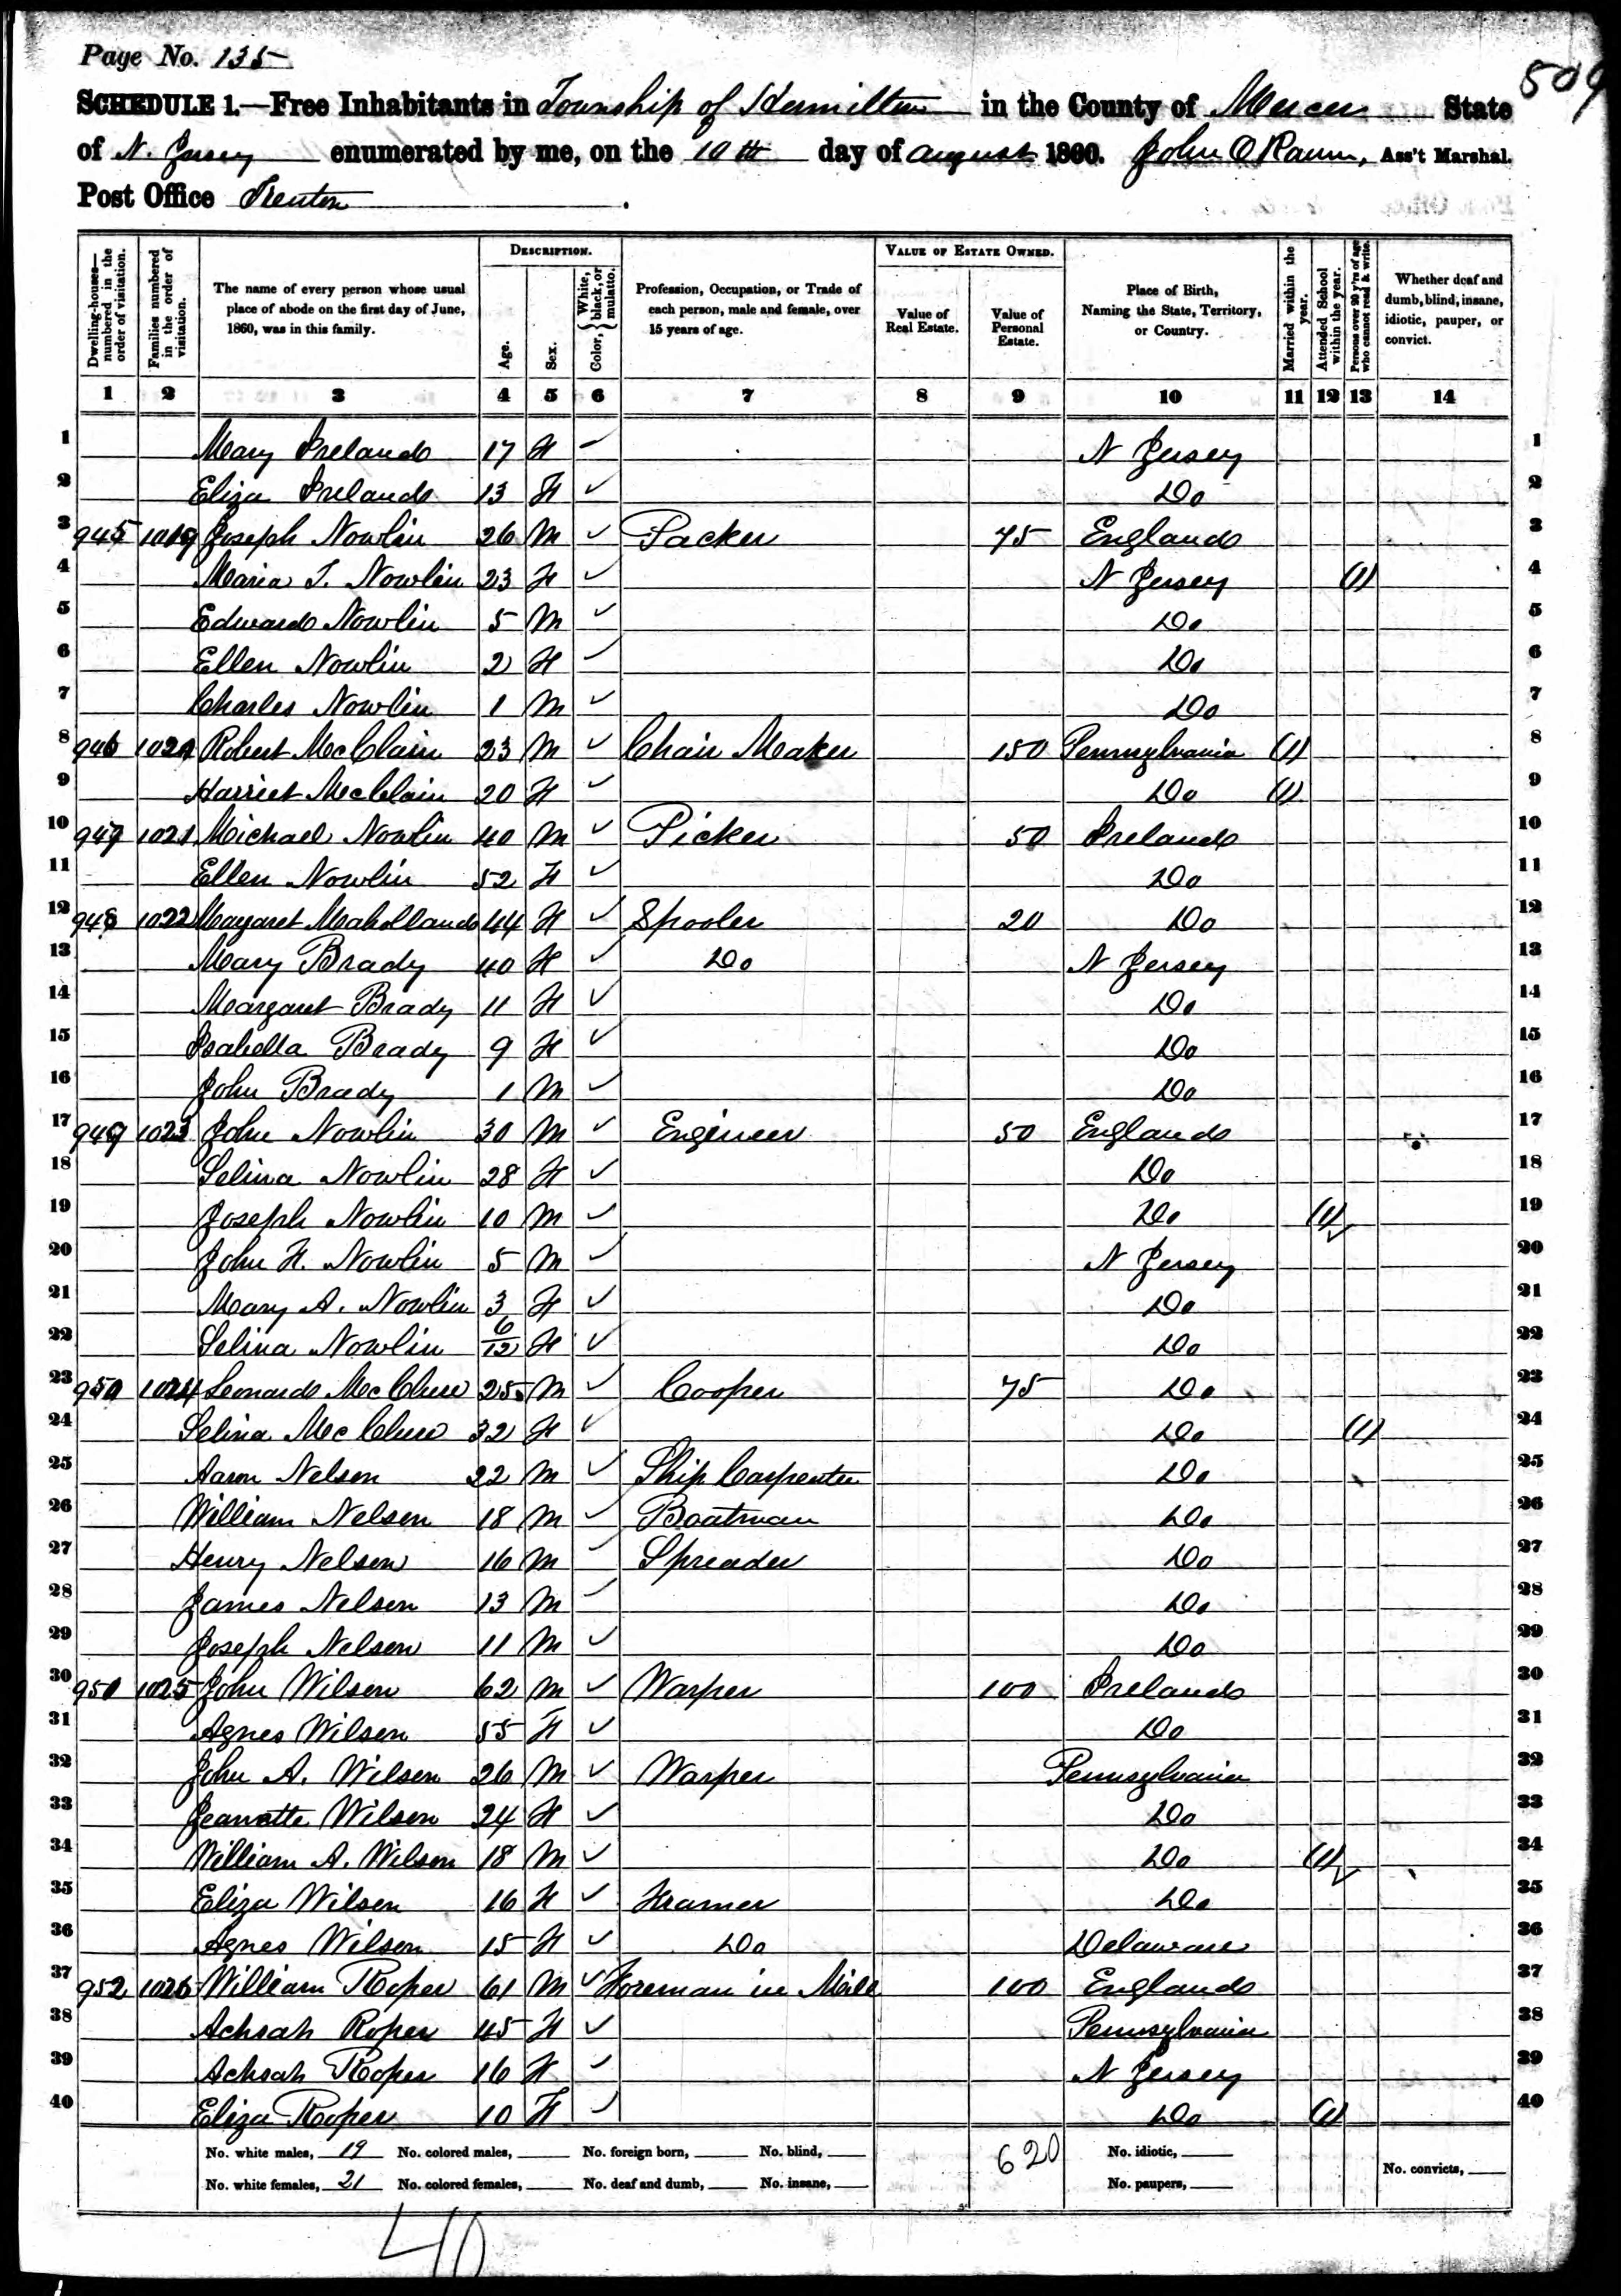 Page No. 135
509
SCHEDULE 1.—Free Inhabitants in Township of Hamilton in the County of Mercer State
of N. Jersey enumerated by me, on the 10th day of August 1860. John O Raum, Ass't Marshal.
Post Office Trenton.
Dwelling-houses—numbered in the order of visitation.
Families numbered in the order of visitation.
The name of every person whose usual place of abode on the first day of June, 1860, was in this family.
DESCRIPTION.
Age.
Sex.
Color, { White, black, or mulatto.
Profession, Occupation, or Trade of each person, male and female, over 15 years of age.
VALUE OF ESTATE OWNED.
Value of Real Estate.
Value of Personal Estate.
Place of Birth, Naming the State, Territory, or Country.
Married within the year.
Attended School within the year.
Persons over 20 y'rs of age who cannot read & write.
Whether deaf and dumb, blind, insane, idiotic, pauper, or convict.
1 2 3 4 5 6 7 8 9 10 11 12 13 14
1 Mary Ireland 17 F N Jersey 1
2 Eliza Ireland 13 F Do 2
3 945 1019 Joseph Nowlin 26 M Packer 75 England 3
4 Maria T. Nowlin 23 F N Jersey (1) 4
5 Edward Nowlin 5 M Do 5
6 Ellen Nowlin 2 F Do 6
7 Charles Nowlin 1 M Do 7
8 946 1020 Robert McClain 23 M Chair Maker 150 Pennsylvania (1) 8
9 Harriet McClain 20 F Do (1) 9
10 947 1021 Michael Nowlin 40 M Picker 50 Ireland 10
11 Ellen Nowlin 52 F Do 11
12 948 1022 Margaret Maholland 44 F Spooler 20 Do 12
13 Mary Brady 40 F Do N Jersey 13
14 Margaret Brady 11 F Do 14
15 Isabella Brady 9 F Do 15
16 John Brady 1 M Do 16
17 949 1023 John Nowlin 30 M Engineer 50 England 17
18 Selina Nowlin 28 F Do 18
19 Joseph Nowlin 10 M Do (1) 19
20 John H. Nowlin 5 M N Jersey 20
21 Mary A. Nowlin 3 F Do 21
22 Selina Nowlin 6/12 F Do 22
23 950 1024 Leonard McClure 25 M Cooper 75 Do 23
24 Selina McClure 32 F Do (1) 24
25 Aaron Nelson 22 M Ship Carpenter Do 25
26 William Nelson 18 M Boatman Do 26
27 Henry Nelson 16 M Spreader Do 27
28 James Nelson 13 M Do 28
29 Joseph Nelson 11 M Do 29
30 951 1025 John Wilson 62 M Warper 100 Ireland 30
31 Agnes Wilson 55 F Do 31
32 John A. Wilson 26 M Warper Pennsylvania 32
33 Jeanette Wilson 24 F Do 33
34 William A. Wilson 18 M Do (1) 34
35 Eliza Wilson 16 F Framer Do 35
36 Agnes Wilson 15 F Do Delaware 36
37 952 1026 William Roper 61 M Foreman in Mill 100 England 37
38 Achsah Roper 45 F Pennsylvania 38
39 Achsah Roper 16 F N Jersey 39
40 Eliza Roper 10 F Do (1) 40
No. white males, 19 No. colored males, No. foreign born, No. blind, 620 No. idiotic,
No. white females, 21 No. colored females, No. deaf and dumb, No. insane, No. paupers, No. convicts,
40